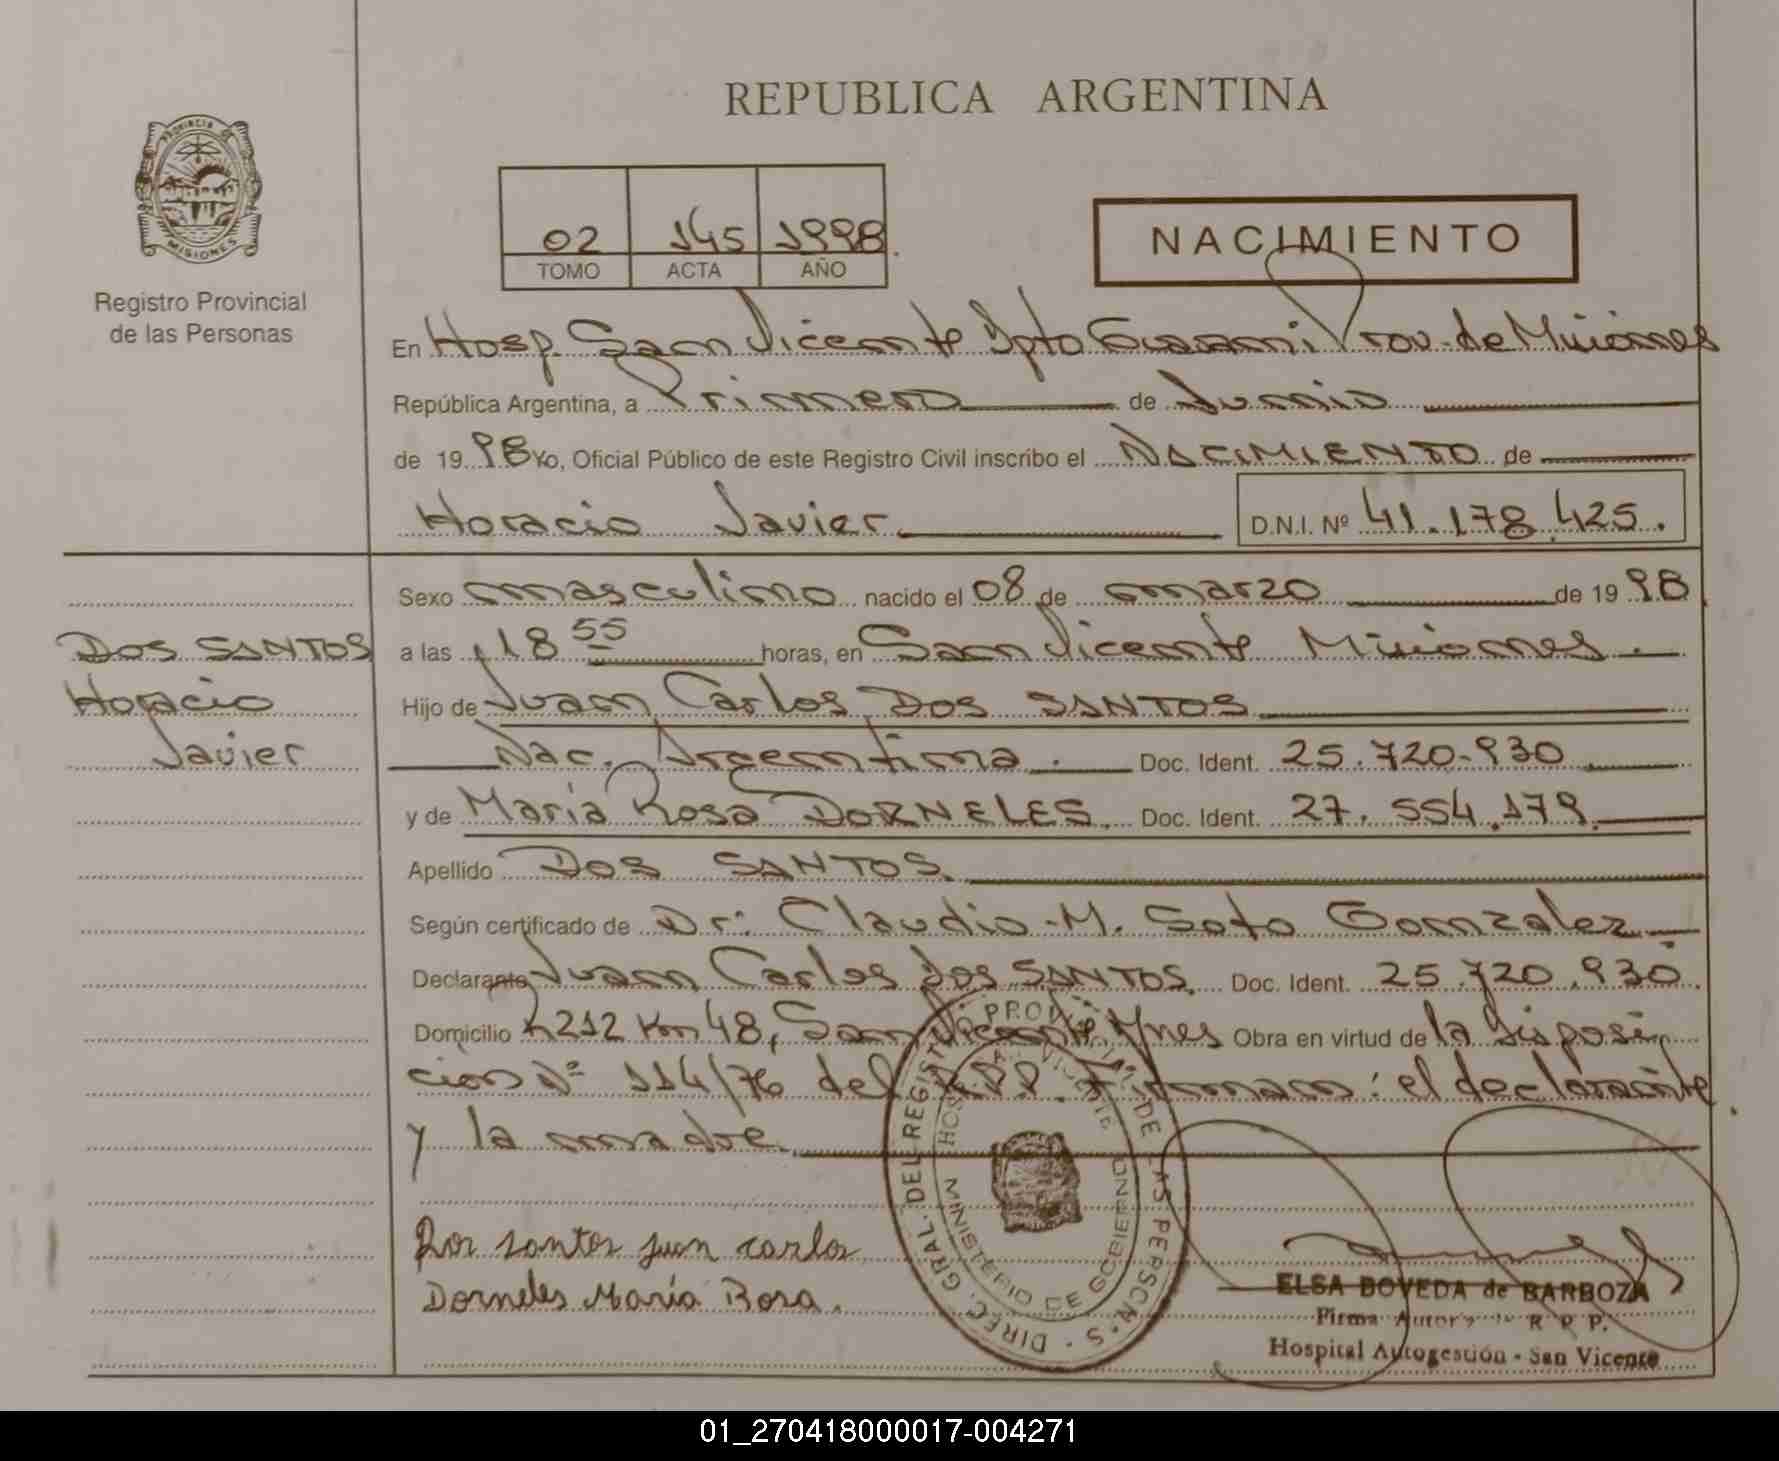 REPUBLICA ARGENTINA
PROVINCIA DE
MISIONES
Registro Provincial
de las Personas
02 145 1998.
TOMO ACTA AÑO
NACIMIENTO
En Hosp. San Vicente Dpto Guarani Prov. de Misiones
República Argentina, a Primero de Junio
de 1998 Yo, Oficial Público de este Registro Civil inscribo el NACIMIENTO de
Horacio Javier D.N.I. Nº 41.178.425.
DOS SANTOS
Horacio
Javier
Sexo masculino nacido el 08 de marzo de 1998
a las 18 55 horas, en San Vicente Misiones.
Hijo de Juan Carlos DOS SANTOS
Nac. Argentina. Doc. Ident. 25.720.930
y de María Rosa DORNELES. Doc. Ident. 27.554.179.
Apellido DOS SANTOS.
Según certificado de Dr: Claudio M. Soto Gonzalez
Declarante Juan Carlos Dos SANTOS. Doc. Ident. 25.720.930.
Domicilio R212 Km 48, San Vicente Mnes Obra en virtud de la Disposi
ción Nº 114/76 del R.P.P. Firman: el declarante
y la madre.
Dos santos juan carlos
Dorneles María Rosa.
DIREC. GRAL. DEL REGISTRO PROVINCIAL DE LAS PERSONAS
MINISTERIO DE GOBIERNO
ELSA BOVEDA de BARBOZA
Firma R. P. P.
Hospital Autogestión - San Vicente
01_270418000017-004271